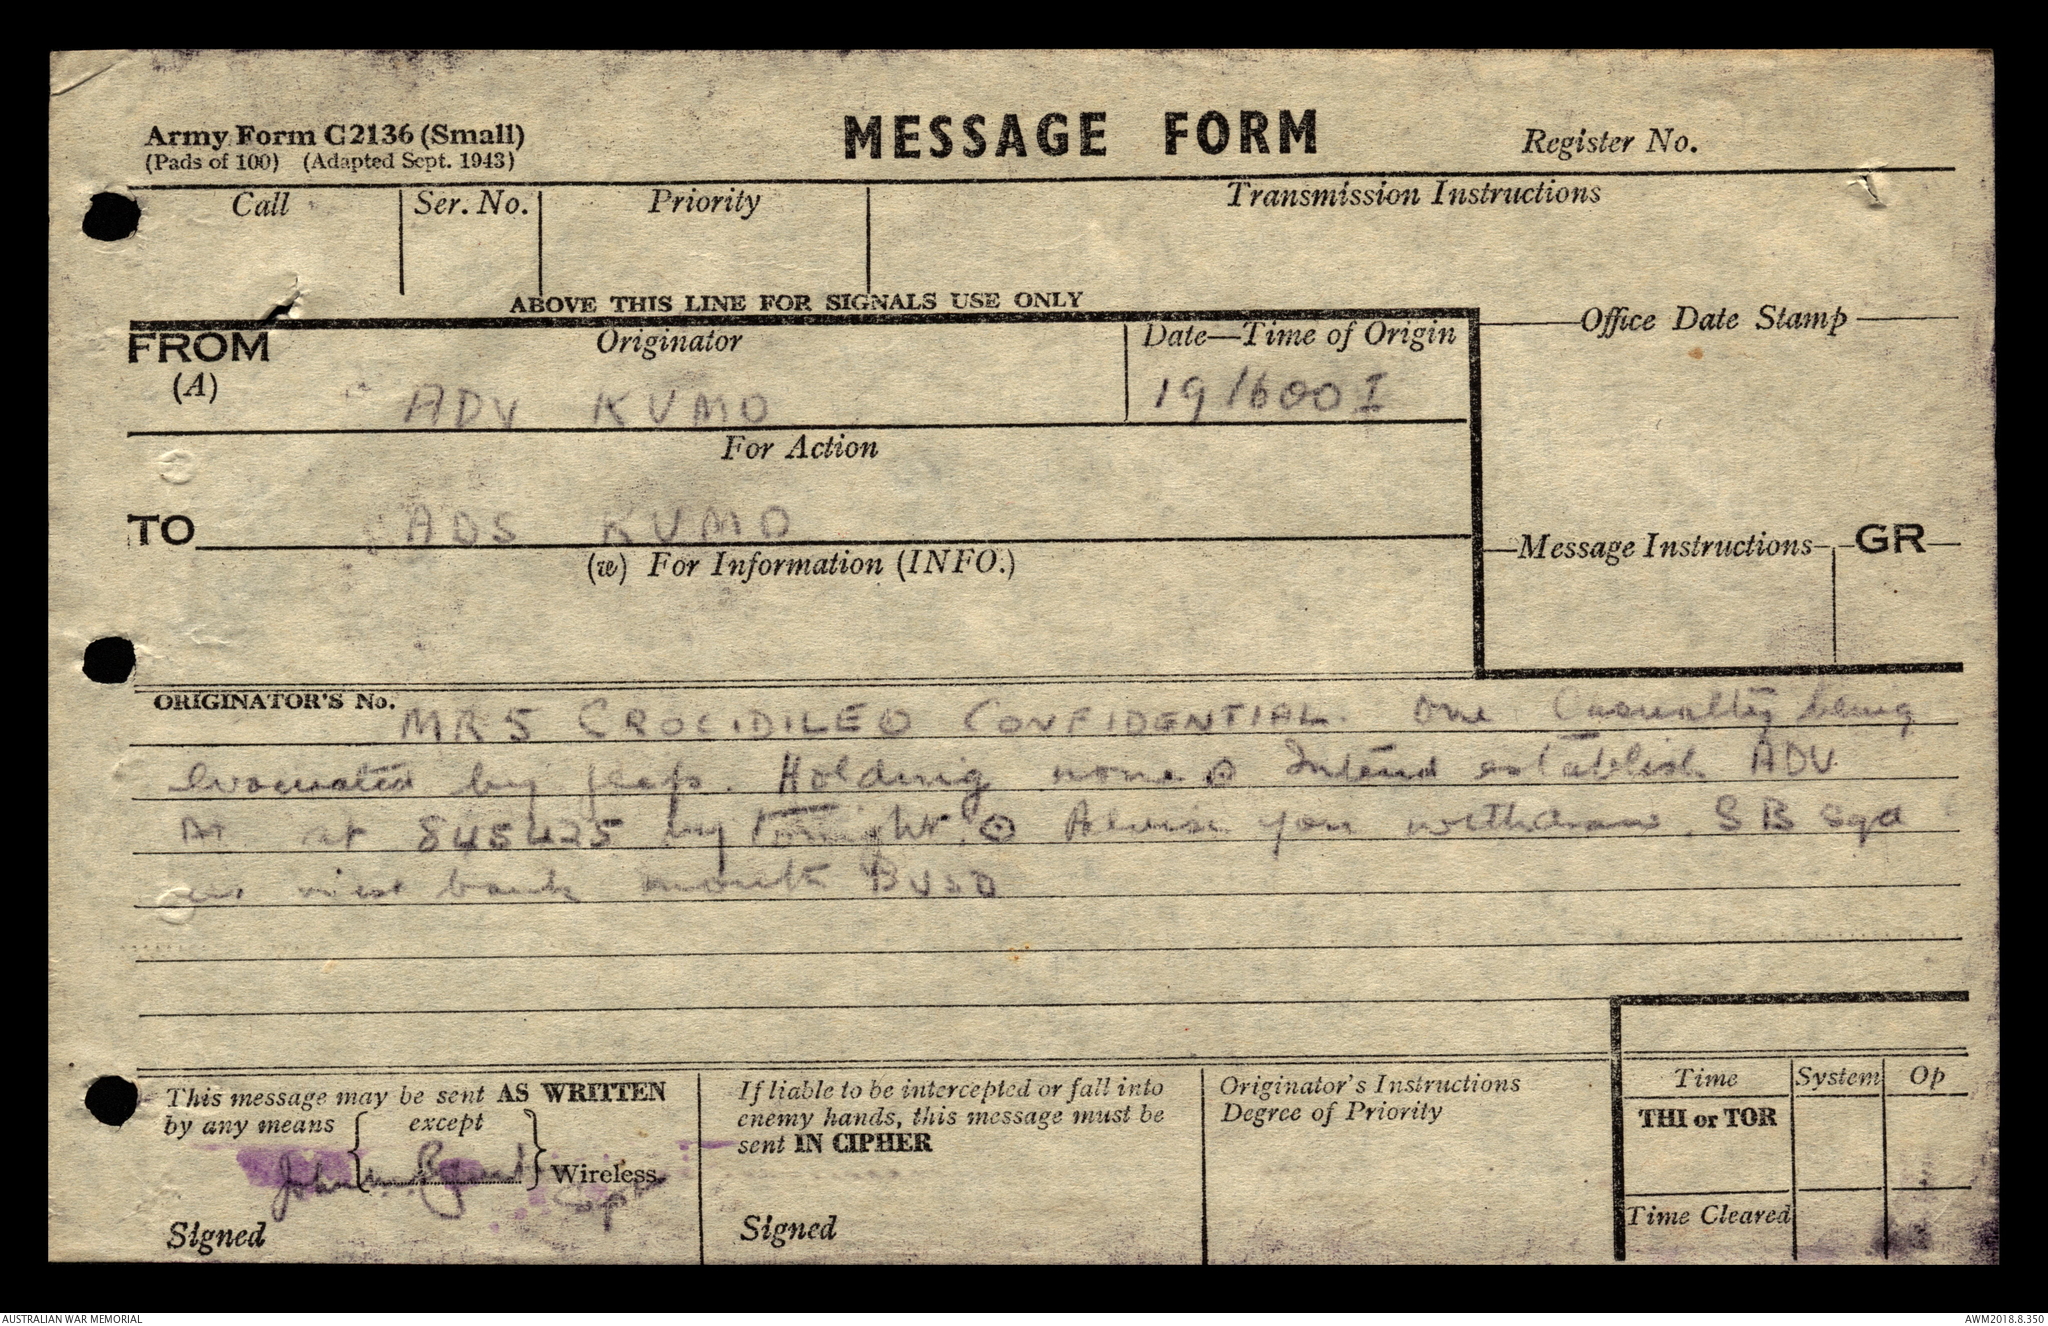 Army Form C2136 (Small)
(Pads of 100) (Adapted Sept. 1943)
MESSAGE FORM
Register No.
Call
Ser. No.
Priority
Transmission Instructions
ABOVE THIS LINE FOR SIGNALS USE ONLY
FROM
(A)
Originator
ADV KUMO
Date—Time of Origin
191600 I
Office Date Stamp
For Action
TO
ADS KUMO
(w) For Information (INFO.)
Message Instructions
GR
ORIGINATOR'S No.
MR 5 CROCIDILEO CONFIDENTIAL. One Casualty being
evacuated by jeep. Holding none ⊙ Intend establish ADV
at 845425 by tonight. ⊙ Advise you withdraw SB Sqd
west bank mouth
This message may be sent AS WRITTEN
by any means { except } Wireless
John
Signed
If liable to be intercepted or fall into
enemy hands, this message must be
sent IN CIPHER
Signed
Originator's Instructions
Degree of Priority
Time
System
Op
THI or TOR
Time Cleared
AUSTRALIAN WAR MEMORIAL
AWM2018.8.350